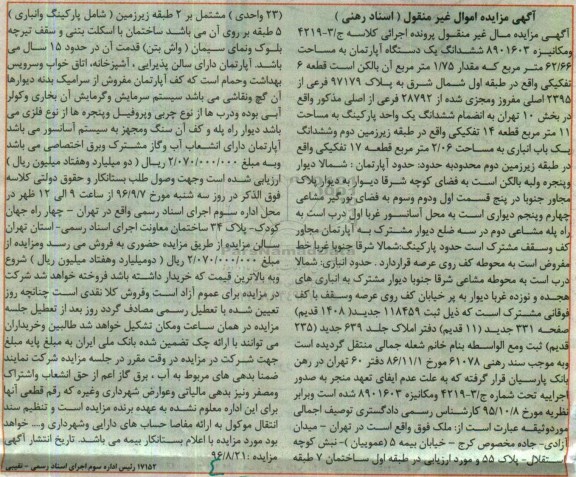 آگهی مزایده اموال غیر منقول ( اسناد رهنی )
آگهی مزایده مال غیر منقول پرونده اجرائی کلاسه ج/۴۲۱۹-۳
ومکانیزه ۸۹۰۱۶۰۳ ششدانگ یک دستگاه آپارتمان به مساحت
۶۲/۶۶ متر مربع که مقدار ۱/۷۵ متر مربع آن بالکن است قطعه ۶
تفکیکی واقع در طبقه اول شمال شرق به پلاک ۹۷۱۷۹ فرعی از
۲۳۹۵ اصلی مفروز ومجزی شده از ۲۸۷۹۲ فرعی از اصلی مذکور واقع
در بخش ۱۰ تهران به انضمام ششدانگ یک واحد پارکینگ به مساحت
۱۱ متر مربع قطعه ۱۴ تفکیکی واقع در طبقه زیرزمین دوم وششدانگ
یک باب انباری به مساحت ۲/۰۶ متر مربع قطعه ۱۷ تفکیکی واقع
در طبقه زیرزمین دوم محدودبه حدود: حدود آپارتمان : شمالا دیوار
وپنجره ولبه بالکن است به فضای کوچه شرقا دیوار به دیوار پلاک
مجاور جنوبا در پنج قسمت اول ودوم وسوم به فضای نورگیر مشاعی
چهارم وپنجم دیواری است به محل آسانسور غربا اول درب است به
راه پله مشاعی دوم در سه ضلع دیوار مشترک به آپارتمان مجاور
کف وسقف مشترک است حدود پارکینگ:شمالا شرقا جنوبا غربا خط
مفروض است به محوطه کف روی عرصه قراردارد . حدود انباری: شمالا
درب است به محوطه مشاعی شرقا جنوبا دیوار مشترک به انباری های
هجده و نوزده غربا دیوار به پر خیابان کف روی عرصه وسقف با کف
فوقانی مشترک است که ذیل ثبت ۱۱۸۴۵۹ جدید( ۱۴۰۸ قدیم)
صفحه ۳۳۱ جدید (۱۱ قدیم) دفتر املاک جلد ۶۳۹ جدید (۲۳۵
قدیم) ثبت ومع الواسطه بنام خانم شعله جمالی منتقل گردیده است
وبه موجب سند رهنی ۶۱۰۷۸ مورخ ۸۶/۱۱/۱ دفتر ۶۰ تهران در رهن
بانک پارسیان قرار گرفته که به علت عدم ایفای تعهد منجر به صدور
اجراییه تحت شماره ج/۴۲۱۹-۳ ومکانیزه ۸۹۰۱۶۰۳ شده است وبرابر
نظریه مورخ ۹۵/۱۰/۸ کارشناس رسمی دادگستری توصیف اجمالی
موردوثیقه عبارت است از: ملک فوق واقع است در تهران – میدان
آزادی- جاده مخصوص کرج – خیابان بیمه ۵ (عموییان )- نبش کوچه
استقلال- پلاک ۵۵ و مورد ارزیابی در طبقه اول ساختمان ۷ طبقه
(۲۳ واحدی ) مشتمل بر ۲ طبقه زیرزمین ( شامل پارکینگ وانباری )
۵ طبقه بر روی آن می باشد ساختمان با اسکلت بتنی و سقف تیرچه
بلوک ونمای سیمان ( واش بتن) قدمت آن در حدود ۱۵ سال می
باشد. آپارتمان دارای سالن پذیرایی ، آشپزخانه، اتاق خواب وسرویس
بهداشت وحمام است که کف آپارتمان مفروش از سرامیک بدنه دیوارها
آن گچ ونقاشی می باشد سیستم سرمایش وگرمایش آن بخاری وکولر
آبی بوده ودرب ها از نوع چربی وپروفیل وپنجره ها از نوع فلزی می
باشد دیوار راه پله و کف آن سنگ ومجهز به سیستم آسانسور می باشد
آپارتمان دارای انشعاب آب وگاز مشترک وبرق اختصاصی می باشد
وبه مبلغ ۲/۰۷۰/۰۰۰/۰۰۰ ریال ( دو میلیارد وهفتاد میلیون ریال )
ارزیابی شده است وجهت وصول طلب بستانکار و حقوق دولتی کلاسه
فوق الذکر در روز سه شنبه مورخ ۹۶/۹/۷ از ساعت ۹ الی ۱۲ ظهر در
محل اداره سوم اجرای اسناد رسمی واقع در تهران – چهار راه جهان
کودک- پلاک ۳۴ ساختمان معاونت اجرای اسناد رسمی- استان تهران
سالن مزایده از طریق مزایده حضوری به فروش می رسد ومزایده از
مبلغ ۲/۰۷۰/۰۰۰/۰۰۰ ریال (دومیلیارد وهفتاد میلیون ریال ) شروع
وبه بالاترین قیمت که خریدار داشته باشد فروخته خواهد شد شرکت
در مزایده برای عموم آزاد است وفروش کلا نقدی است چنانچه روز
تعیین شده با تعطیل رسمی مصادف گردد روز بعد از تعطیل جلسه
مزایده در همان ساعت ومکان تشکیل خواهد شد طالبین وخریداران
می توانند با ارائه چک تضمین شده بانک ملی ایران به مبلغ پایه مبلغ
جهت شرکت در مزایده در وقت مقرر در جلسه مزایده شرکت نمایند
ضمنا بدهی های مربوط به آب ، برق گاز اعم از حق انشعاب واشتراک
ومصفر ونیز بدهی مالیاتی وعوارض شهرداری وغیره که رقم قطعی آنها
برای این اداره معلوم نشده به عهده برنده مزایده است و تنظیم سند
انتقال موکول به ارائه مفاصا حساب های دارایی وشهرداری و... خواهد
بود مورد مزایده با اعلام بستانکار بیمه می باشد. تاریخ انتشار آگهی
مزایده :۹۶/۸/۲۱
۱۷۱۵۲ رئیس اداره سوم اجرای اسناد رسمی – نقیبی